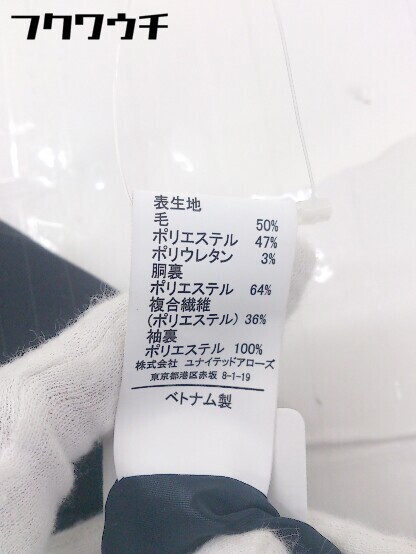 フクワウチ
表生地
毛 50%
ポリエステル 47%
ポリウレタン 3%
胴裏
ポリエステル 64%
複合繊維
(ポリエステル) 36%
袖裏
ポリエステル 100%
株式会社 ユナイテッドアローズ
東京都港区赤坂 8-1-19
ベトナム製